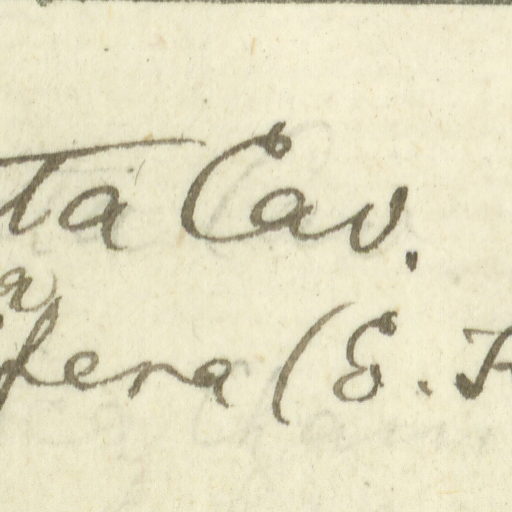 ta Cav.
a
fera (E. F